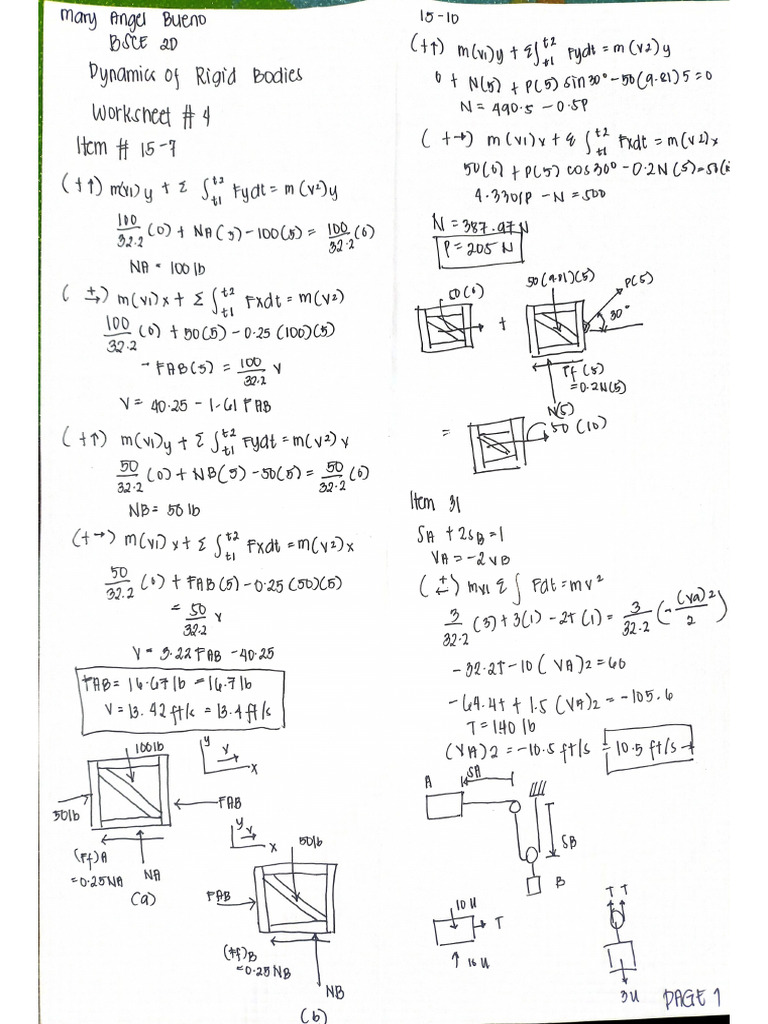 Mary Angel Bueno
BSCE 2D
Dynamics of Rigid Bodies
Worksheet # 4
Item # 15-7
(+↑) m(v1)y + Σ ∫t1 t2 Fydt = m(v2)y
100/32.2 (0) + NA(5) - 100(5) = 100/32.2 (0)
NA = 100 lb
(+→) m(v1)x + Σ ∫t1 t2 Fxdt = m(v2)
100/32.2 (0) + 50(5) - 0.25(100)(5)
- FAB(5) = 100/32.2 v
V = 40.25 - 1.61 FAB
(+↑) m(v1)y + Σ ∫t1 t2 Fydt = m(v2)y
50/32.2 (0) + NB(5) - 50(5) = 50/32.2 (0)
NB = 50 lb
(+→) m(v1)x + Σ ∫t1 t2 Fxdt = m(v2)x
50/32.2 (0) + FAB(5) - 0.25(50)(5)
= 50/32.2 v
V = 3.22 FAB - 40.25
FAB = 16.67 lb = 16.7 lb
V = 13.42 ft/s = 13.4 ft/s
100 lb
y
v
x
50 lb
FAB
(Ff)A
= 0.25NA
NA
(a)
y
v
x
50 lb
FAB
(Ff)B
= 0.25NB
NB
(b)
15-10
(+↑) m(v1)y + Σ ∫t1 t2 Fydt = m(v2)y
0 + N(5) + P(5) sin30° - 50(9.81)5 = 0
N = 490.5 - 0.5P
(+→) m(v1)x + Σ ∫t1 t2 Fxdt = m(v2)x
50(0) + P(5) cos30° - 0.2N(5) = 50(
4.3301P - N = 500
N = 387.97 N
P = 205 N
50(0)
+
50(9.81)(5)
P(5)
30°
Ff(5)
= 0.2N(5)
N(5)
=
50(10)
Item 31
SA + 2SB = 1
VA = -2VB
(+←) mv1 Σ ∫ Fdt = mv2
3/32.2 (3) + 3(1) - 2T(1) = 3/32.2 (- (VA)2/2)
-32.2T - 10(VA)2 = 60
-64.4T + 1.5(VA)2 = -105.6
T = 1.40 lb
(VA)2 = -10.5 ft/s = 10.5 ft/s →
A
SA
SB
B
T
T T
PAGE 1